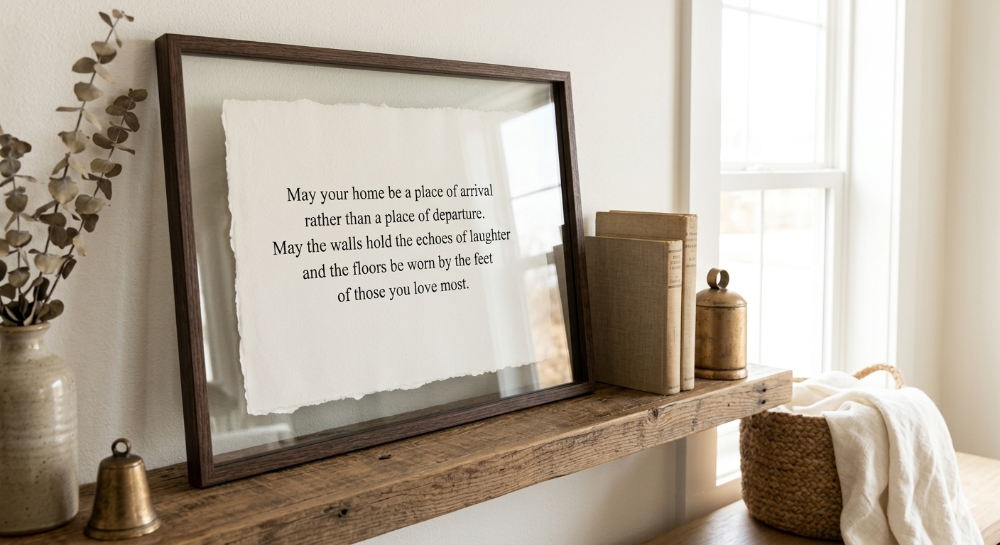 May your home be a place of arrival
rather than a place of departure.
May the walls hold the echoes of laughter
and the floors be worn by the feet
of those you love most.